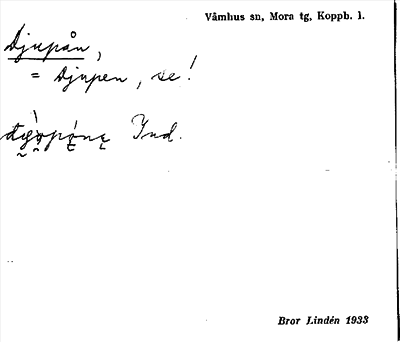 Våmhus sn, Mora tg, Koppb. l.
Djupån,
= Djupen, se!
Ind.
Bror Lindén 1933